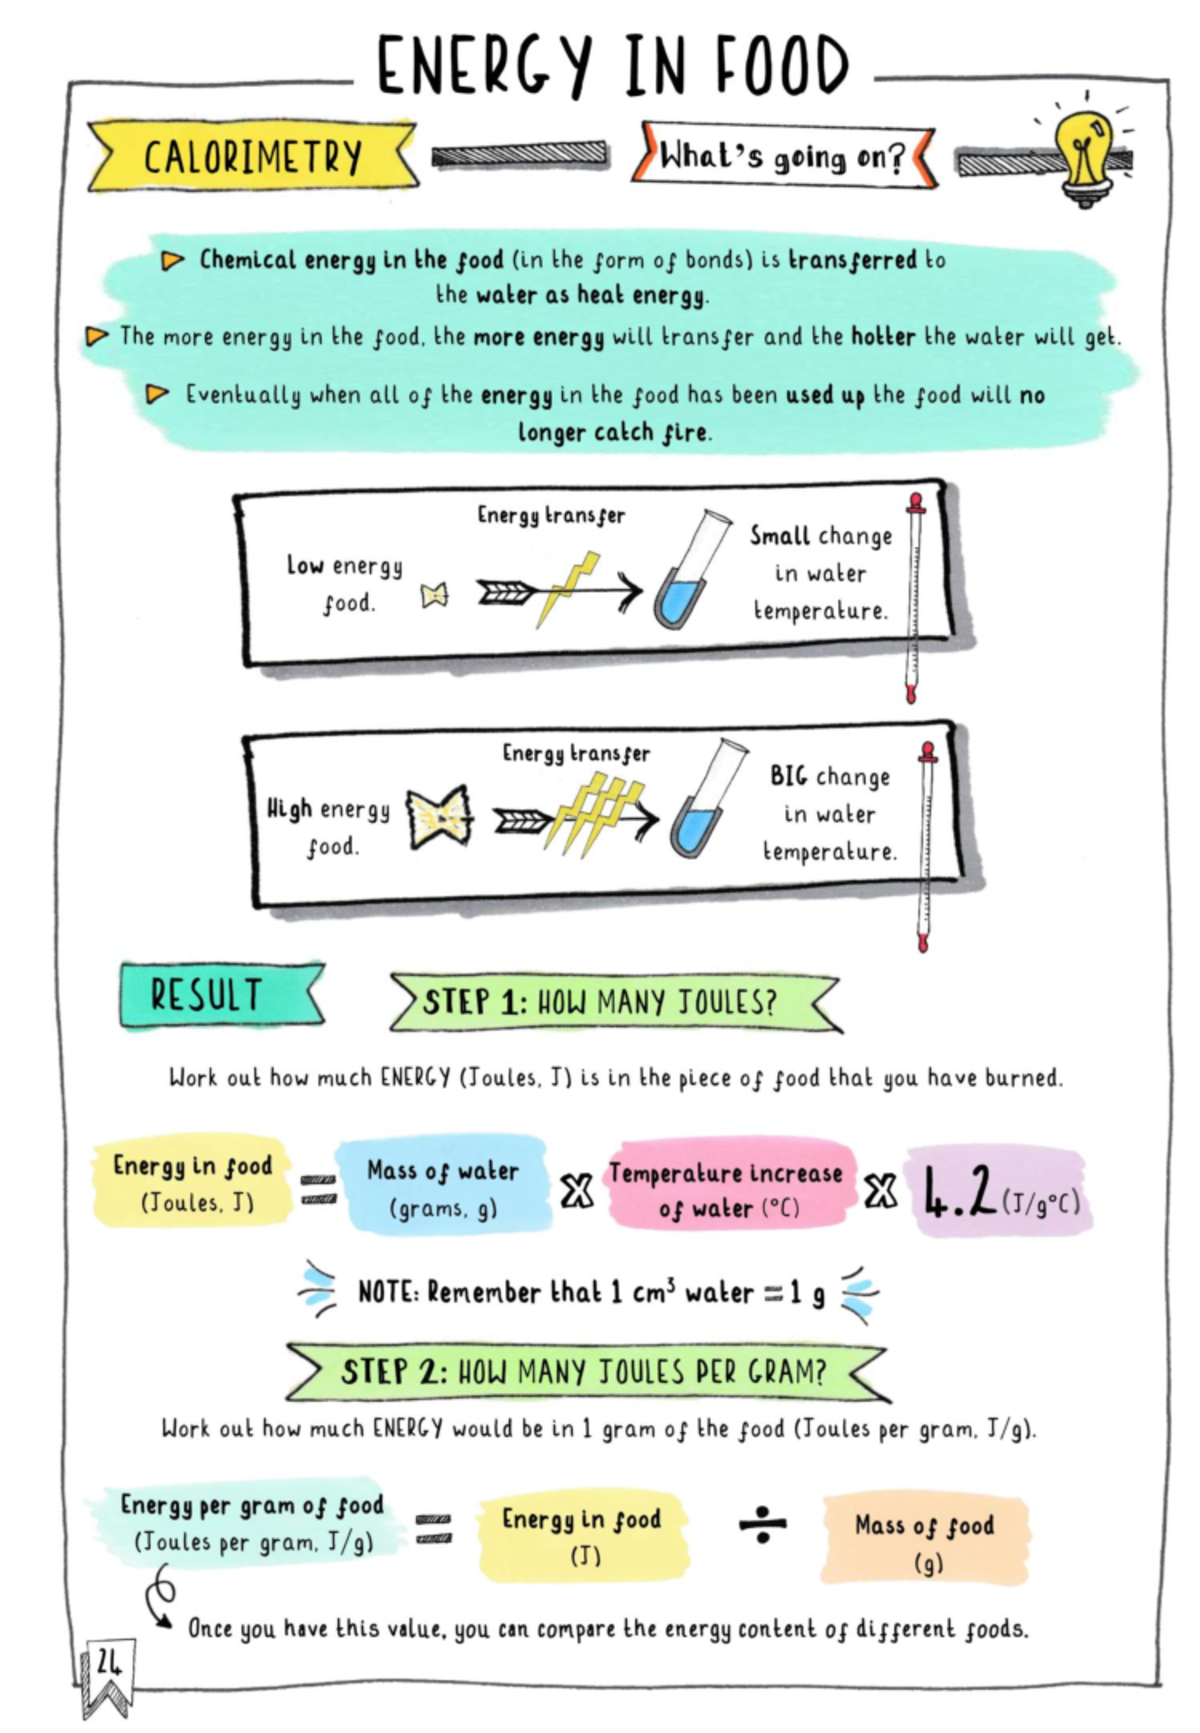 ENERGY IN FOOD
CALORIMETRY
What's going on?
Chemical energy in the food (in the form of bonds) is transferred to
the water as heat energy.
The more energy in the food, the more energy will transfer and the hotter the water will get.
Eventually when all of the energy in the food has been used up the food will no
longer catch fire.
Energy transfer
Low energy
food.
Small change
in water
temperature.
Energy transfer
High energy
food.
BIG change
in water
temperature.
RESULT
STEP 1: HOW MANY JOULES?
Work out how much ENERGY (Joules, J) is in the piece of food that you have burned.
Energy in food
(Joules, J)
=
Mass of water
(grams, g)
x
Temperature increase
of water (°C)
x
4.2 (J/g°C)
NOTE: Remember that 1 cm³ water = 1 g
STEP 2: HOW MANY JOULES PER GRAM?
Work out how much ENERGY would be in 1 gram of the food (Joules per gram, J/g).
Energy per gram of food
(Joules per gram, J/g)
=
Energy in food
(J)
÷
Mass of food
(g)
Once you have this value, you can compare the energy content of different foods.
24